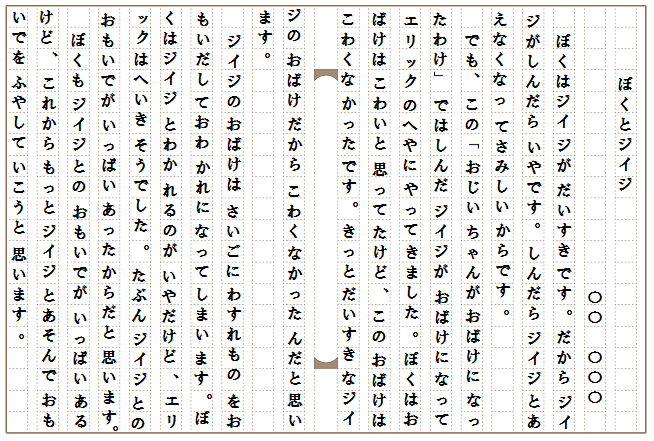 ぼくとジイジ
〇〇 〇〇〇
ぼくはジイジがだいすきです。だからジイ
ジがしんだらいやです。しんだらジイジとあ
えなくなってさみしいからです。
でも、この「おじいちゃんがおばけになっ
たわけ」ではしんだジイジがおばけになって
エリックのへやにやってきました。ぼくはお
ばけはこわいと思ってたけど、このおばけは
こわくなかったです。きっとだいすきなジイ
ジのおばけだからこわくなかったんだと思い
ます。
ジイジのおばけはさいごにわすれものをお
もいだしておわかれになってしまいます。ぼ
くはジイジとわかれるのがいやだけど、エリ
ックはへいきそうでした。たぶんジイジとの
おもいでがいっぱいあったからだと思います。
ぼくもジイジとのおもいでがいっぱいある
けど、これからもっとジイジとあそんでおも
いでをふやしていこうと思います。